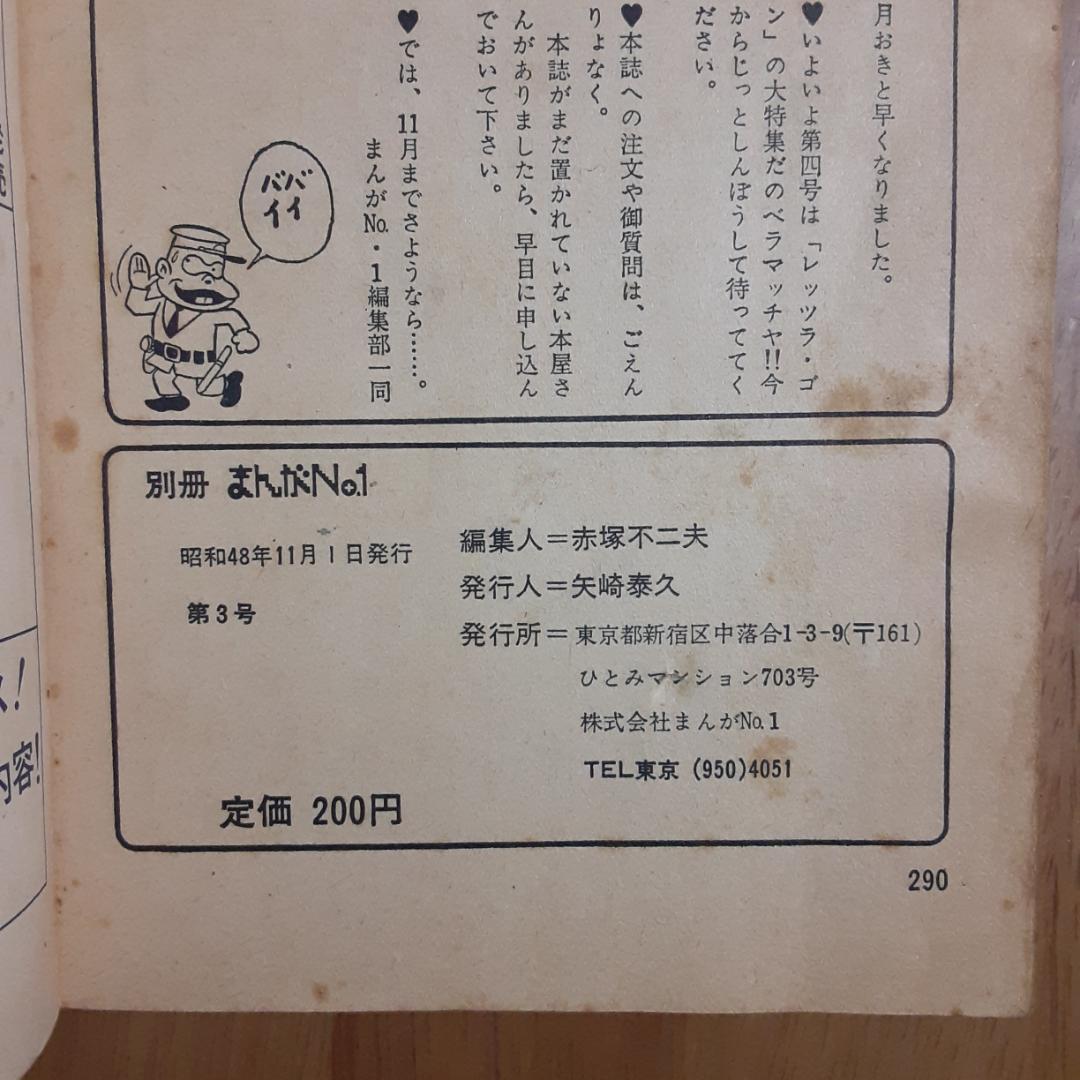 月おきと早くなりました。
♥いよいよ第四号は「レッツラ・ゴ
ン」の大特集だのベラマッチャ!!今
からじっとしんぼうして待っててく
ださい。
♥本誌への注文や御質問は、ごえん
りょなく。
本誌がまだ置かれていない本屋さ
んがありましたら、早目に申し込ん
でおいて下さい。
♥では、11月までさようなら……。
まんがNo.・1編集部一同
バ゙バイイ
別冊 まんがNo.1
昭和48年11月1日発行
第3号
編集人＝赤塚不二夫
発行人＝矢崎泰久
発行所＝東京都新宿区中落合1-3-9(〒161)
ひとみマンション703号
株式会社まんがNo.1
TEL東京 (950)4051
定価 200円
290
内容!